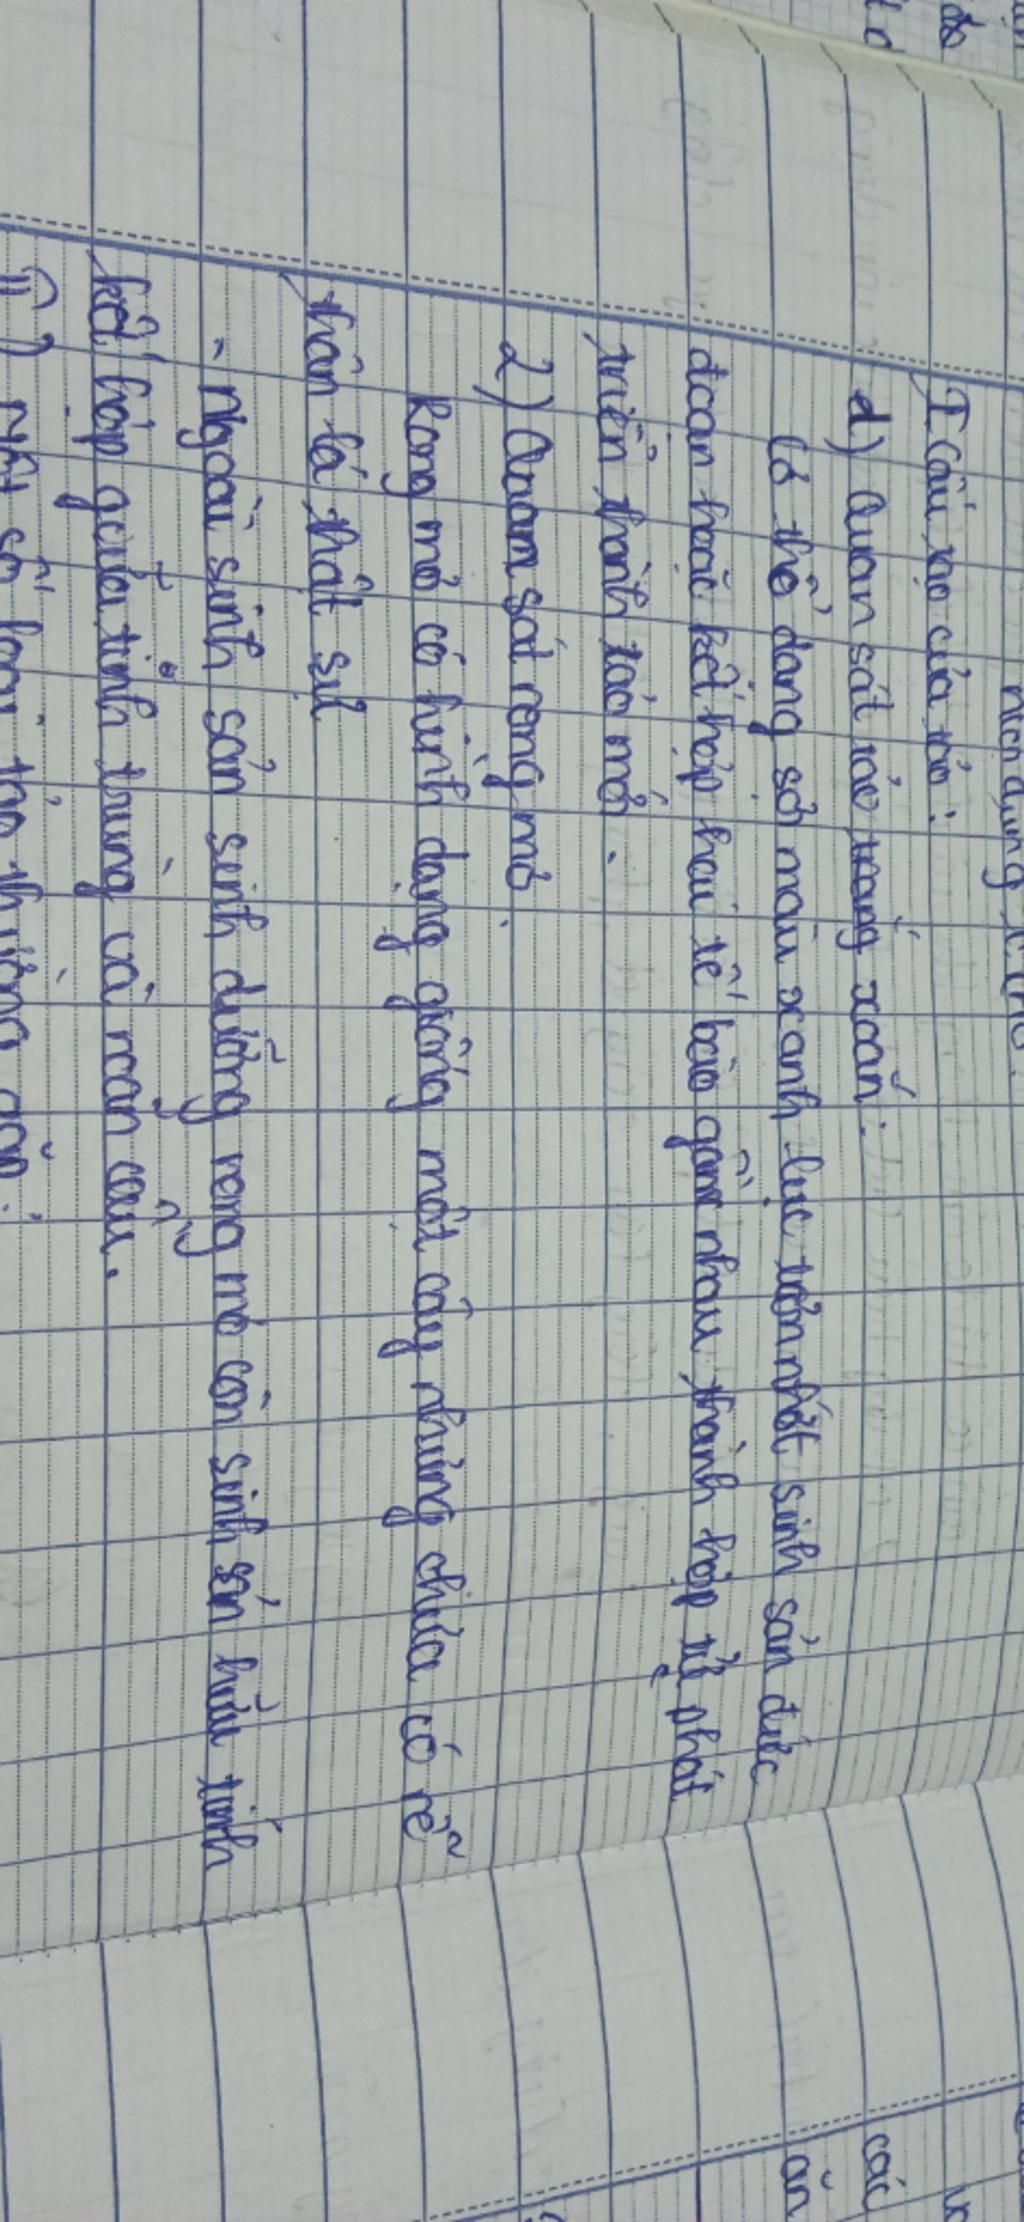 I Cấu tạo của tảo:
1) Quan sát tảo trắng xoắn:
Cơ thể dạng sợi màu xanh lục trơn nhớt sinh sản đứt
đoạn hoặc kết hợp hai tế bào gần nhau thành hợp tử phát
triển thành tảo mới.
2) Quan sát rong mơ
Rong mơ có hình dạng giống một cây nhưng chưa có rễ
thân lá thật sự
- Ngoài sinh sản sinh dưỡng rong mơ còn sinh sản hữu tính
kết hợp giữa tinh trùng và noãn cầu.
II) Một số loại tảo thường gặp:
các